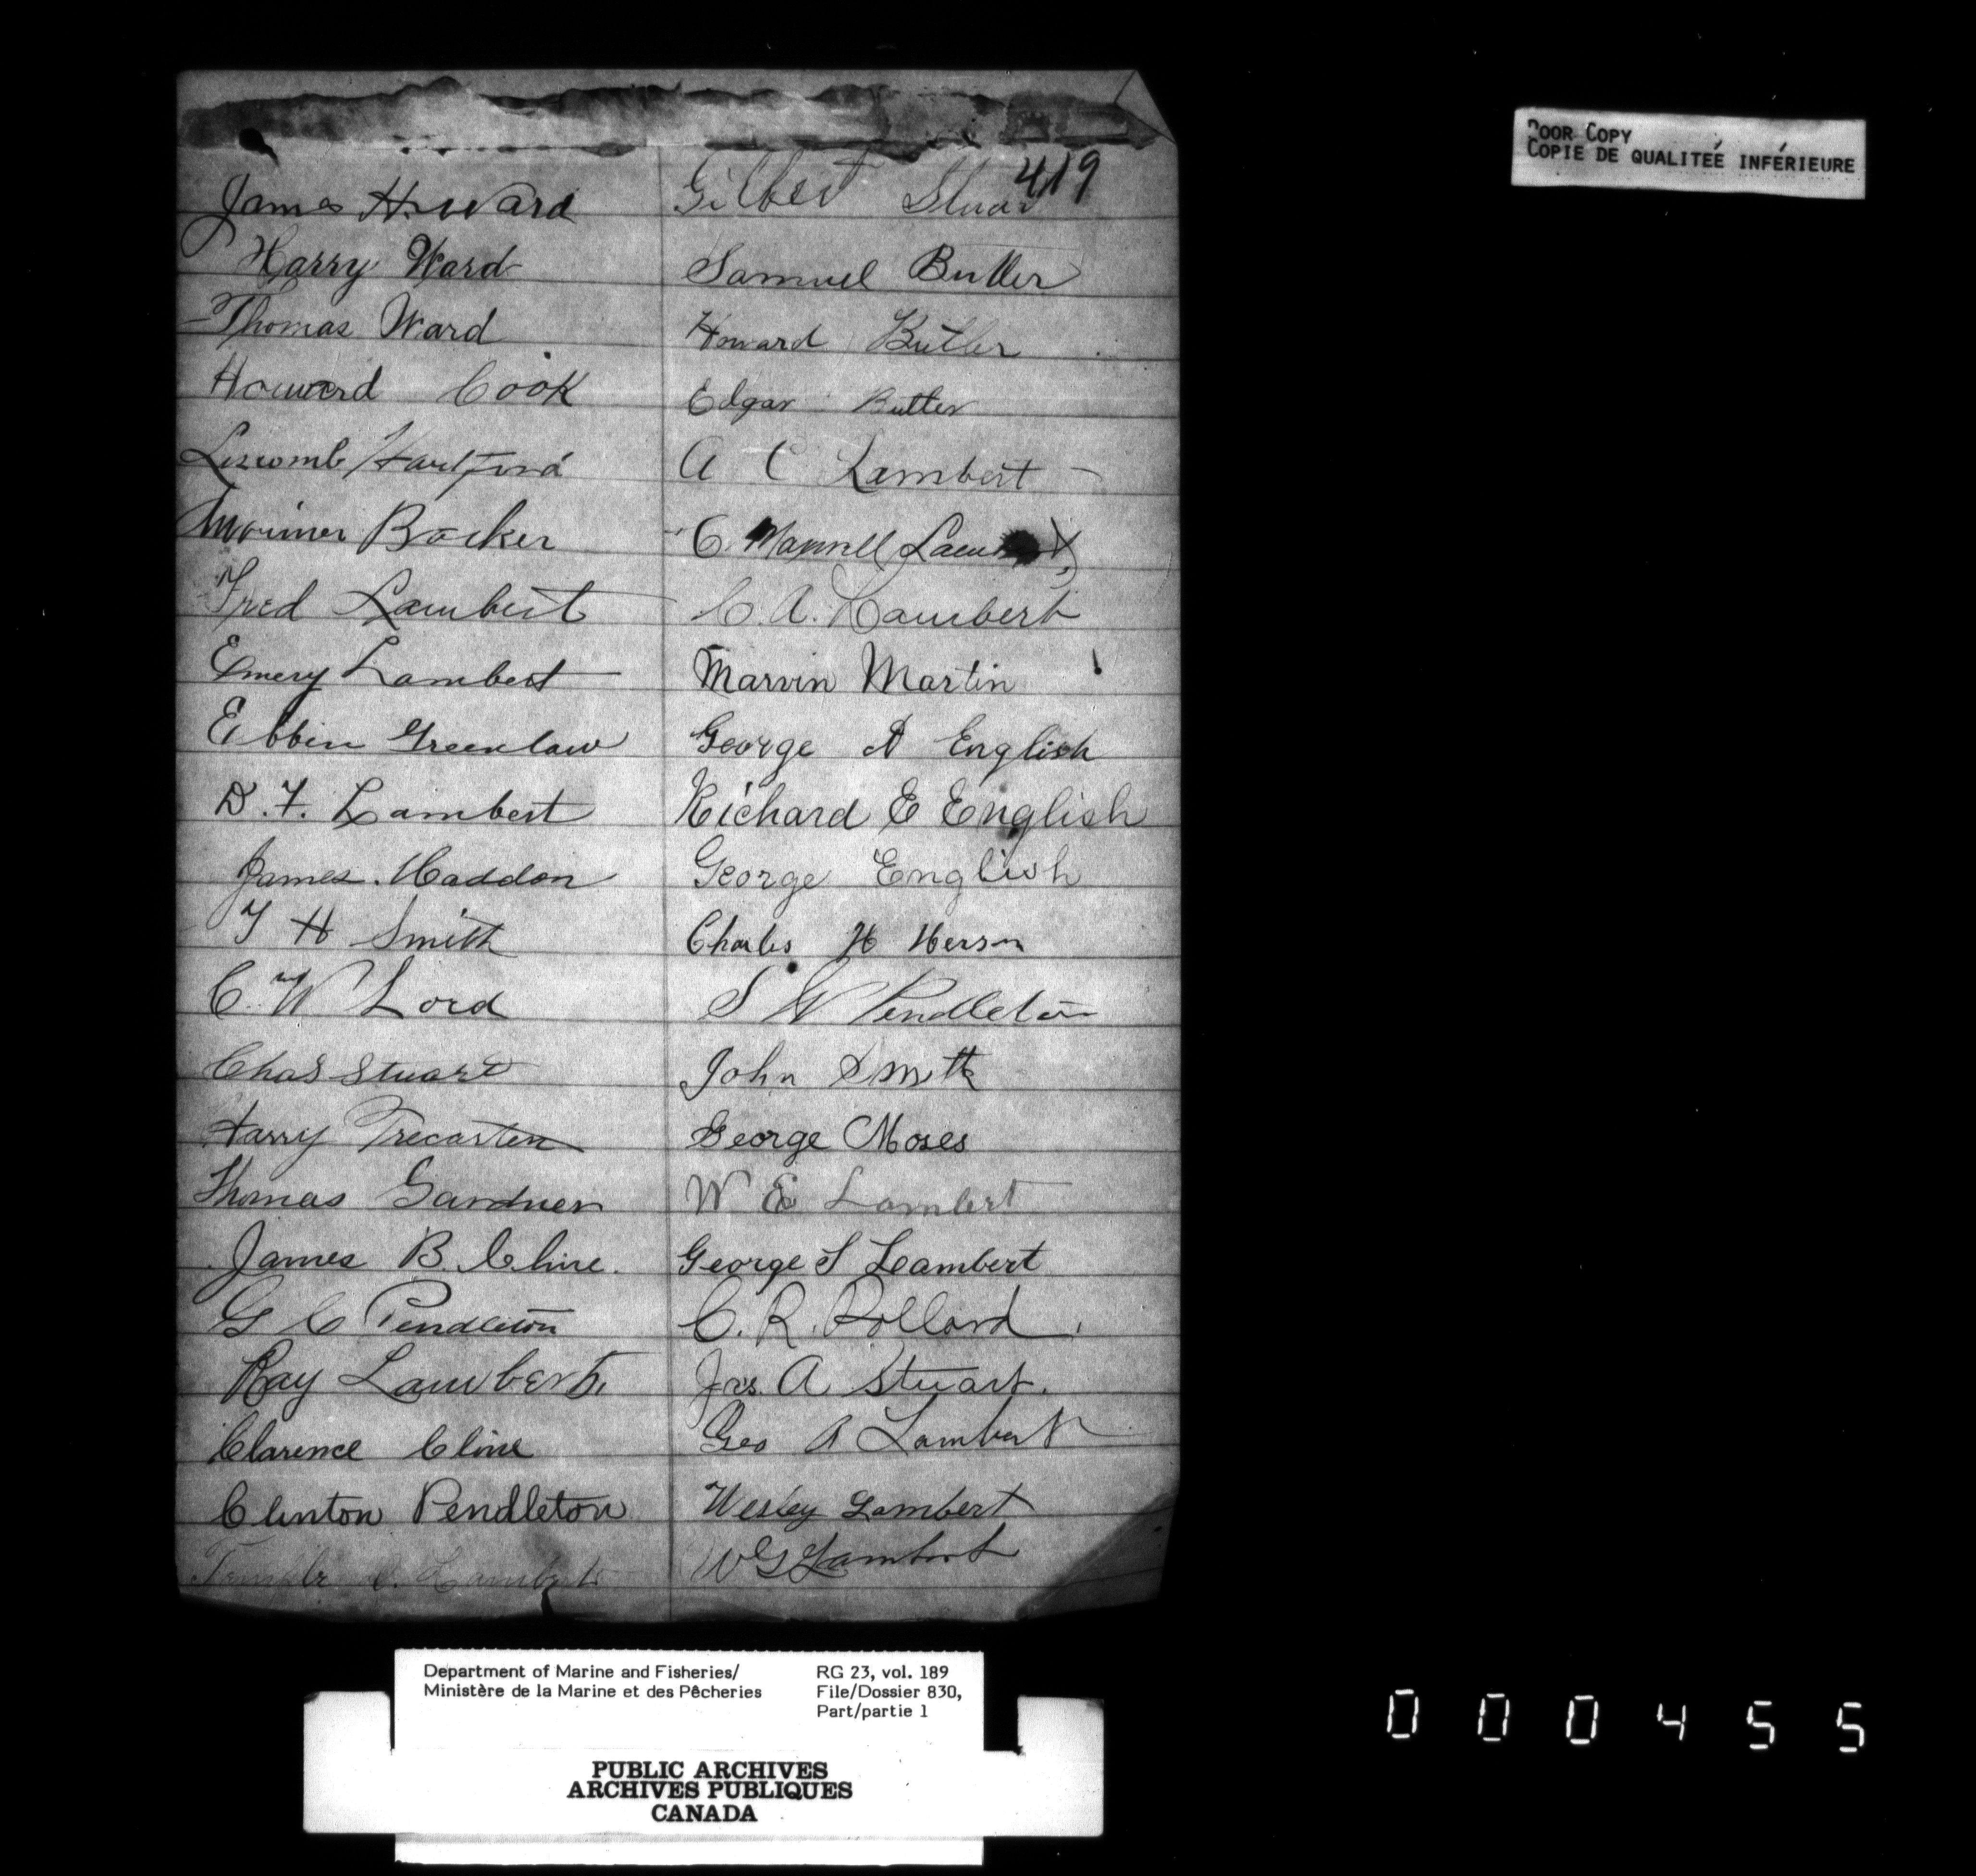 419
James Howard
Harry Ward
Thomas Ward
Howard Cook
Liscomb Hartford
Barker
Fred Lambert
Emery Lambert
Ebbin Greenlaw
D. F. Lambert
James Haddon
H Smith
C. W Lord
Chas Stuart
Harry Trecarten
Thomas Gardner
James B. Cline.
G C Pendleton
Ray Lambert,
Clarence Cline
Clinton Pendleton
Temple C. Lambert
Gilbert Stuar
Samuel Butler
Howard Butler
Edgar Butler
A C Lambert
C. Maxwell Lambert
C. A. Lambert
Marvin Martin
George A English
Richard E English
George English
Charles H Herson
S W Pendleton
John Smith
George Moses
W E Lambert
George S Lambert
C. R. Pollard.
Jas. A Stuart.
Geo A Lambert
Wesley Lambert
W G Lambert
POOR COPY
COPIE DE QUALITEÉ INFÉRIEURE
Department of Marine and Fisheries/
Ministère de la Marine et des Pêcheries
RG 23, vol. 189
File/Dossier 830,
Part/partie 1
PUBLIC ARCHIVES
ARCHIVES PUBLIQUES
CANADA
000455